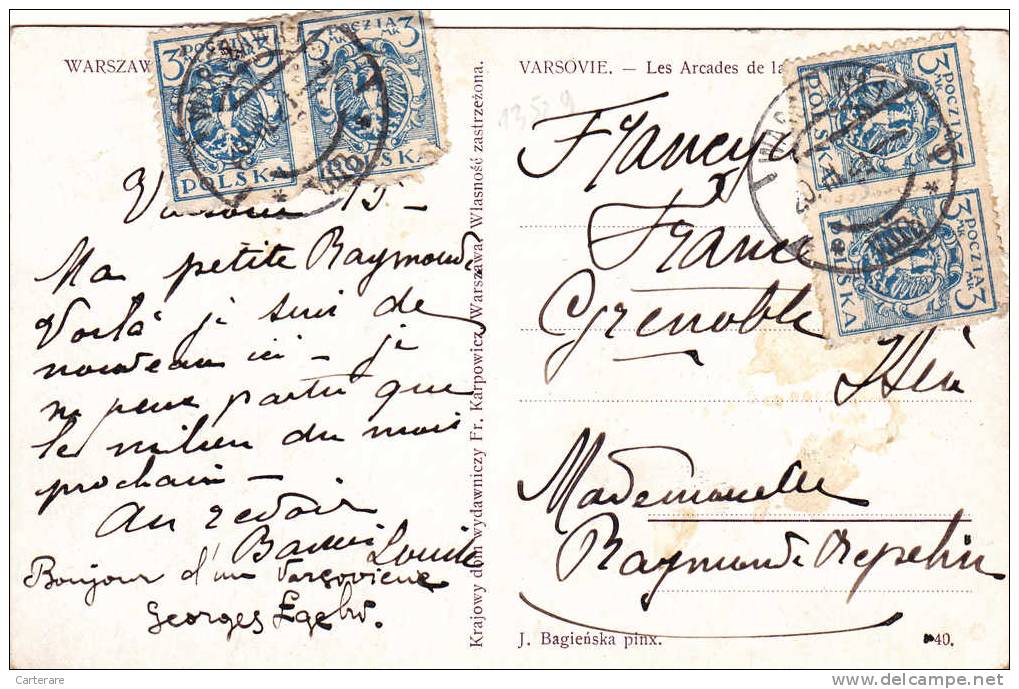 WARSZAW
VARSOVIE. — Les Arcades de la
3 POCZTA 3
MK MK
POLSKA
3 POCZTA 3
MK MK
POLSKA
3 POCZTA 3
MK MK
POLSKA
3 POCZTA 3
MK MK
POLSKA
13529
15 —
Ma petite Raymonde
Voilà je suis de
nouveau ici — je
ne peux partir que
le milieu du mois
prochain —
Au revoir
Louise
Bonjour d'un Varsovien
Georges
Krajowy dom wydawniczy Fr. Karpowicz, Warszawa. Własność zastrzeżona.
Francya
France
Grenoble
Isère
Mademoiselle
Raymonde Repelin
J. Bagieńska pinx.
40.
Carterare
delcampe.net